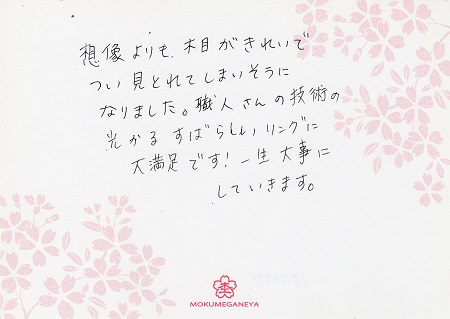 想像よりも、木目がきれいで
つい見とれてしまいそうに
なりました。職人さんの技術の
光かる すばらしいリングに
大満足です！一生大事に
していきます。
MOKUMEGANEYA